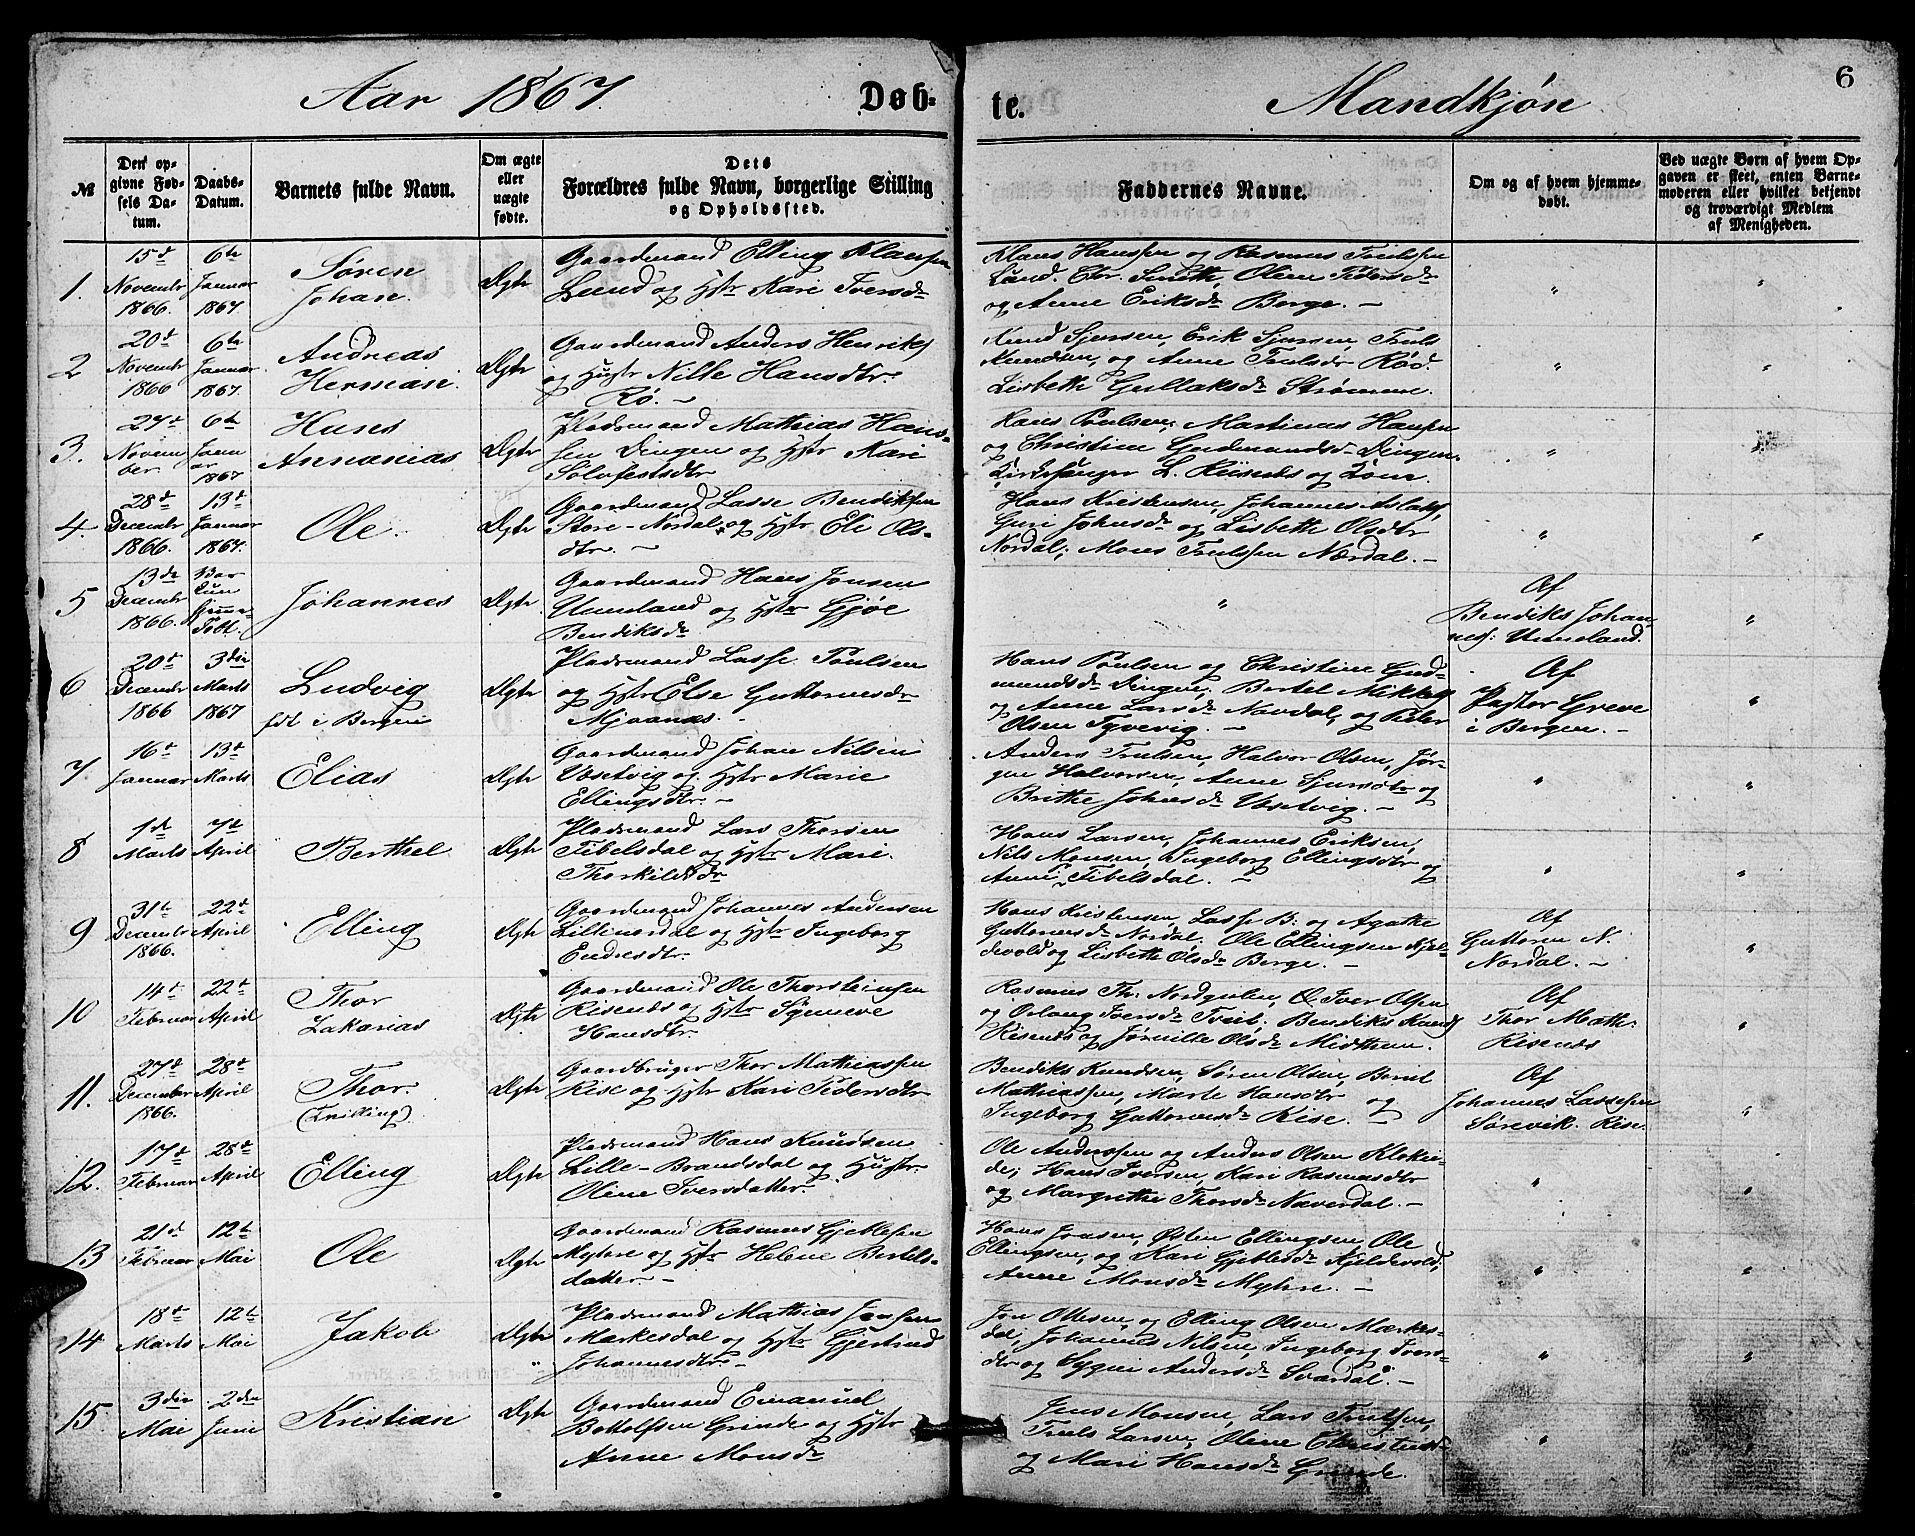 6
Aar 1867. Døb- te. Mandkjøn
№
Den op-
givne Fød-
sels Da-
tum.
Daabs-
Datum.
Barnets fulde Navn.
Om ægte
eller
uægte
fødte.
Dets
Forældres fulde Navn, borgerlige Stilling
og Opholdssted.
Faddernes Navne.
Om og af hvem hjemme-
døbt.
Ved uægte Børn af hvem Op-
gaven er skeet, enten Barne-
moderen eller hvilket bekjendt
og troværdigt Medlem
af Menigheden.
1.
15de
Novembr
1866.
6te
Januar
1867.
Søren
Johan.
Ægte
Gaardmand Elling Klausen
Lund og Hstr Kari Iversdr
Klaus Hanssen og Rasmus Trulssen
Lund. Chr. Smith, Oline Pedersdr
og Anne Eriksdr Berge. —
2
20de
Novembr
1866
6te
Januar
1867.
Andreas
Herman.
Ægte
Gaardmand Anders Henriks
og Hustr Nille Hansdtr.
Rø. —
Knud Sjursen, Erik Sjursen, Truls
Knudsen, og Anne Trulsdr Rød.
Lisbeth Gullaksdr Strømme.
3.
27de
Novem-
ber.
6te
Janu-
ar
1867
Hans
Annanias
Ægte
Pladsmand Mathias Hans-
sen Dingen og Hstr Kari
Solofestsdtr
Hans Poulsen, Martinus Hansen
og Christine Gudmundsdr Dingen.
Kirkesanger L. Risnes og Kone.
4.
28de
Decembr
1866.
13de
Januar
1867.
Ole.
Ægte
Gaardmand Lasse Bendiksen
Store-Nordal og Hstr Eli Ols-
dtr. —
Hans Kristensen, Johannes Aslaks,
Guri Johnsdr og Lisbeth Olsdtr
Nordal; Mons Trulssen Nordal. —
5
13de
Decembr
1866.
Bar
Kun
hjemme-
døbt.
Johannes
Ægte
Gaardmand Hans Jonsen
Unneland og Hstr Gjøe
Bendiksdr
Af
Bendiks Johan-
nes: Unneland.
6
20de
Decembr
1866
3die
Marts
1867
Ludvig
født i Bergen
Ægte
Pladsmand Lasse Poulsen
og Hstr Else Guttormsdr
Mjaanes. —
Hans Poulsen og Christine Gud-
mundsdr Dingen, Bertel Mikkels
og Anne Larsdr Nordal, og Peder
Olsen Tyvevig. —
Af
Pastor Greve
i Bergen. —
7.
16de
Januar
13de
Marts
Elias
Ægte
Gaardmand Johan Nilsen
Ubsetvig og Hstr Marie
Ellingsdtr. —
Anders Trulsen, Halvor Olsen, Jør-
gen Halvorsen, Anne Sjursdtr og
Brithe Johnsdr Ubsetvig. —
8
1de
Marts
7de
April
Berthel
Ægte
Pladsmand Lars Thorsen
Tibelsdal og Hstr Mari
Thorkildsdr
Hans Larsen, Johannes Eriksen,
Nils Monsen, Ingeborg Ellingsdtr og
Anni Tibelsdal. —
9
31te
Decembr
1866.
22de
April
Elling
Ægte
Gaardmand Johannes Andersen
Lillenordal og Hstr Ingeborg
Endresdtr.
Hans Kristensen, Lasse B. og Agathe
Guttormsdr Nordal. Ole Ellingsen Kjel-
devold og Lisbeth Olsdr Berge. —
Af
Guttorm N.
Nordal. —
10
14de
Februar
22de
April
Thor
Zakarias
Ægte
Gaardmand Ole Thorsteinsen
Risenes og Hstr Synneve
Hansdtr.
Rasmus Th: Nordgulen, Iver Olsen
og Orlaug Iversdr Tveit, Bendiks Knuds
Risenes og Jørnille Olsdr Midthun.
Af
Thor Math:
Risenes
11.
27de
Decembr
1866.
28de
April
Thor.
(Tvilling).
Ægte
Gaardbruger Thor Mathiassen
Rise og Hstr Kari Pedersdtr
Bendiks Knudsen, Søren Olsen, Berul
Mathiassen, Marte Hansdtr og
Ingeborg Guttormsdr Rise. —
Af
Johannes Lassesen
Sørevik. Rise.
12.
17de
Februar
28de
April
Elling
Ægte
Pladsmand Hans Knudsen
Lille-Brandsdal og Hustr
Oline Iversdatter.
Ole Anderssen og Anders Olsen Klokei-
de; Hans Iversen, Kari Rasmusdtr
og Margrethe Thorsdr Naverdal. —
13
21de
Februar
12te
Mai
Ole
Ægte
Gaardmand Rasmus Gjeblesen
Myhre og Hstr Helene Bertels-
datter —
Hans Jonsen, Østen Ellingsen, Ole
Ellingsen, og Kari Gjeblesdr Kjeldevold;
Anne Monsdr Myhre. —
14
18de
Marts
12te
Mai
Jakob
Ægte
Pladsmand Mathias Jonssen
Markesdal og Hstr Gjertrud
Johannesdtr. —
Jon Ottesen, og Elling Olsen Markes-
dal, Johannes Nilsen, Ingeborg Ivers-
dtr og Sygni Andersdr Svardal. —
15.
3die
Mai
2den
Juni
Kristian
Ægte
Gaardmand Emanuel
Bottolfsen Grinde og Hstr
Anne Monsdr
Jens Monsen, Lars Trulssen,
Truls Larsen, Oline Christensd
og Mari Hansdr Grinde.